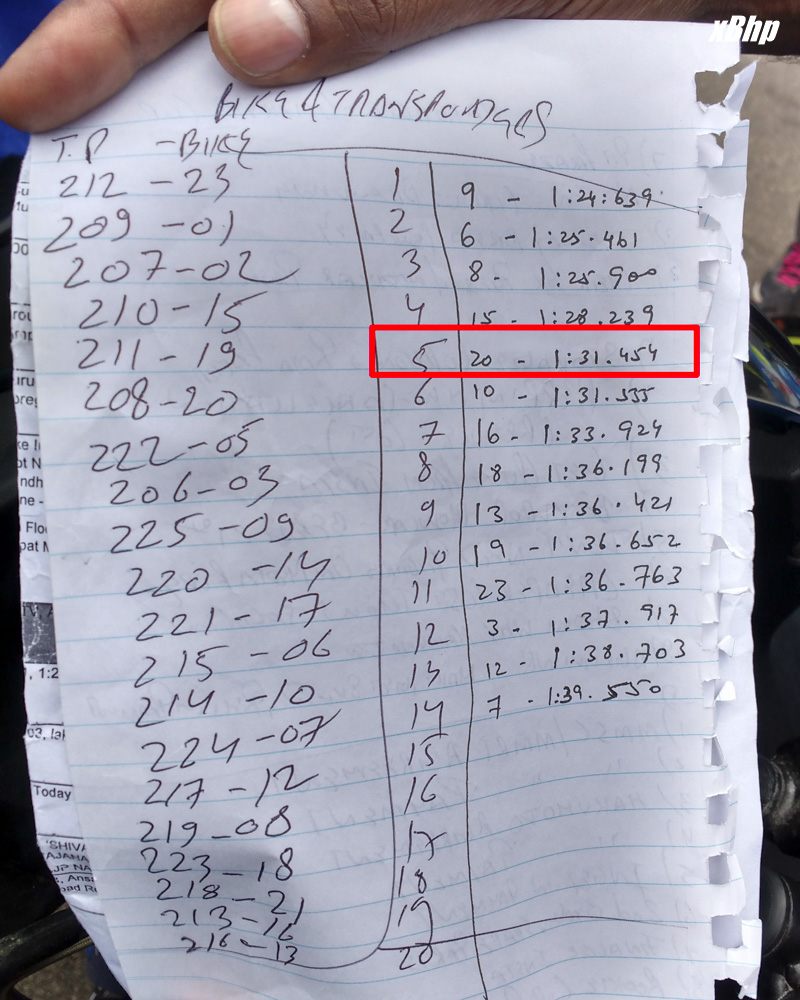 xBhp
BIKE & TRANSPONDERS
T.P - BIKE
212 - 23
209 - 01
207 - 02
210 - 15
211 - 19
208 - 20
222 - 05
206 - 03
225 - 09
220 - 14
221 - 17
215 - 06
214 - 10
224 - 07
217 - 12
219 - 08
223 - 18
218 - 21
213 - 16
216 - 13
1 9 - 1:24:639
2 6 - 1:25.461
3 8 - 1:25.900
4 15 - 1:28.239
5 20 - 1:31.454
6 10 - 1:31.535
7 16 - 1:33.924
8 18 - 1:36.199
9 13 - 1:36.421
10 19 - 1:36.652
11 23 - 1:36.763
12 3 - 1:37.917
13 12 - 1:38.703
14 7 - 1:39.550
15
16
17
18
19
20
Today
'SHIVA
AJANA
JP NA